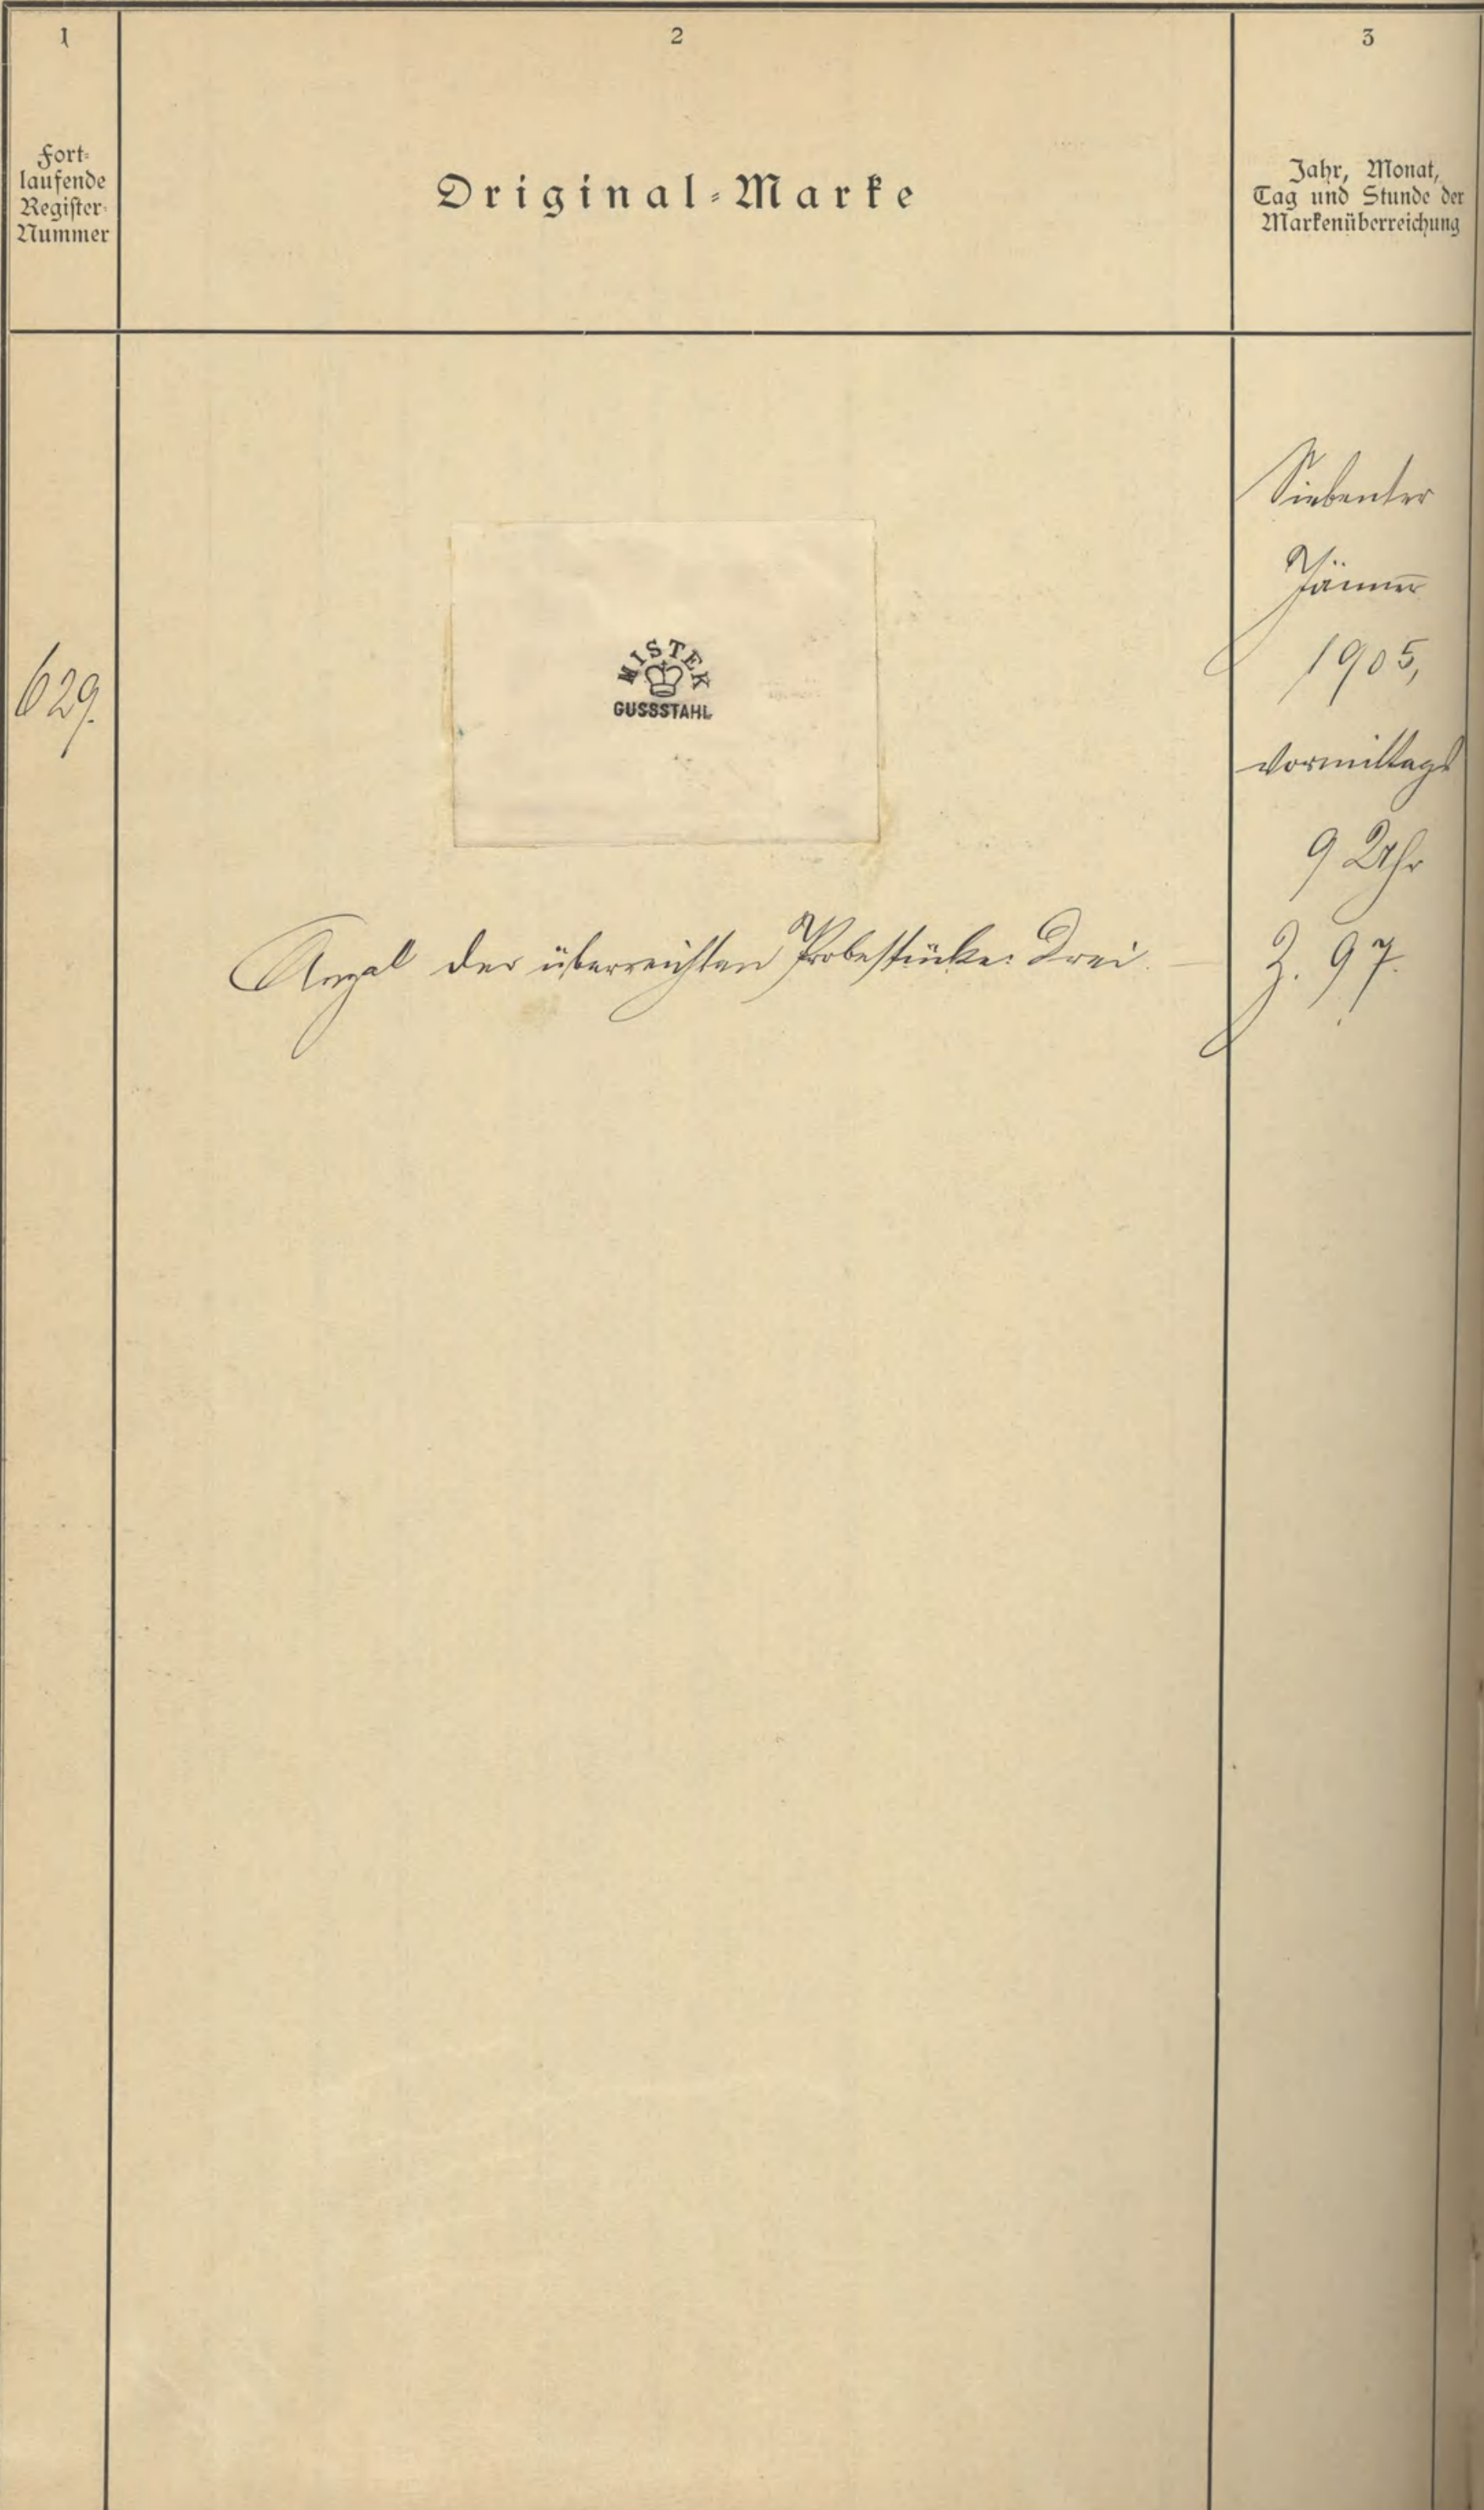 1
2
3
Fort-
laufende
Register-
Nummer
Original-Marke
Jahr, Monat,
Tag und Stunde der
Markenüberreichung
629.
MISTEK
GUSSSTAHL
Anzal der überreichten Probestücke: Drei.
Siebenter
Jänner
1905,
vormittags
9 Uhr
Z. 97.